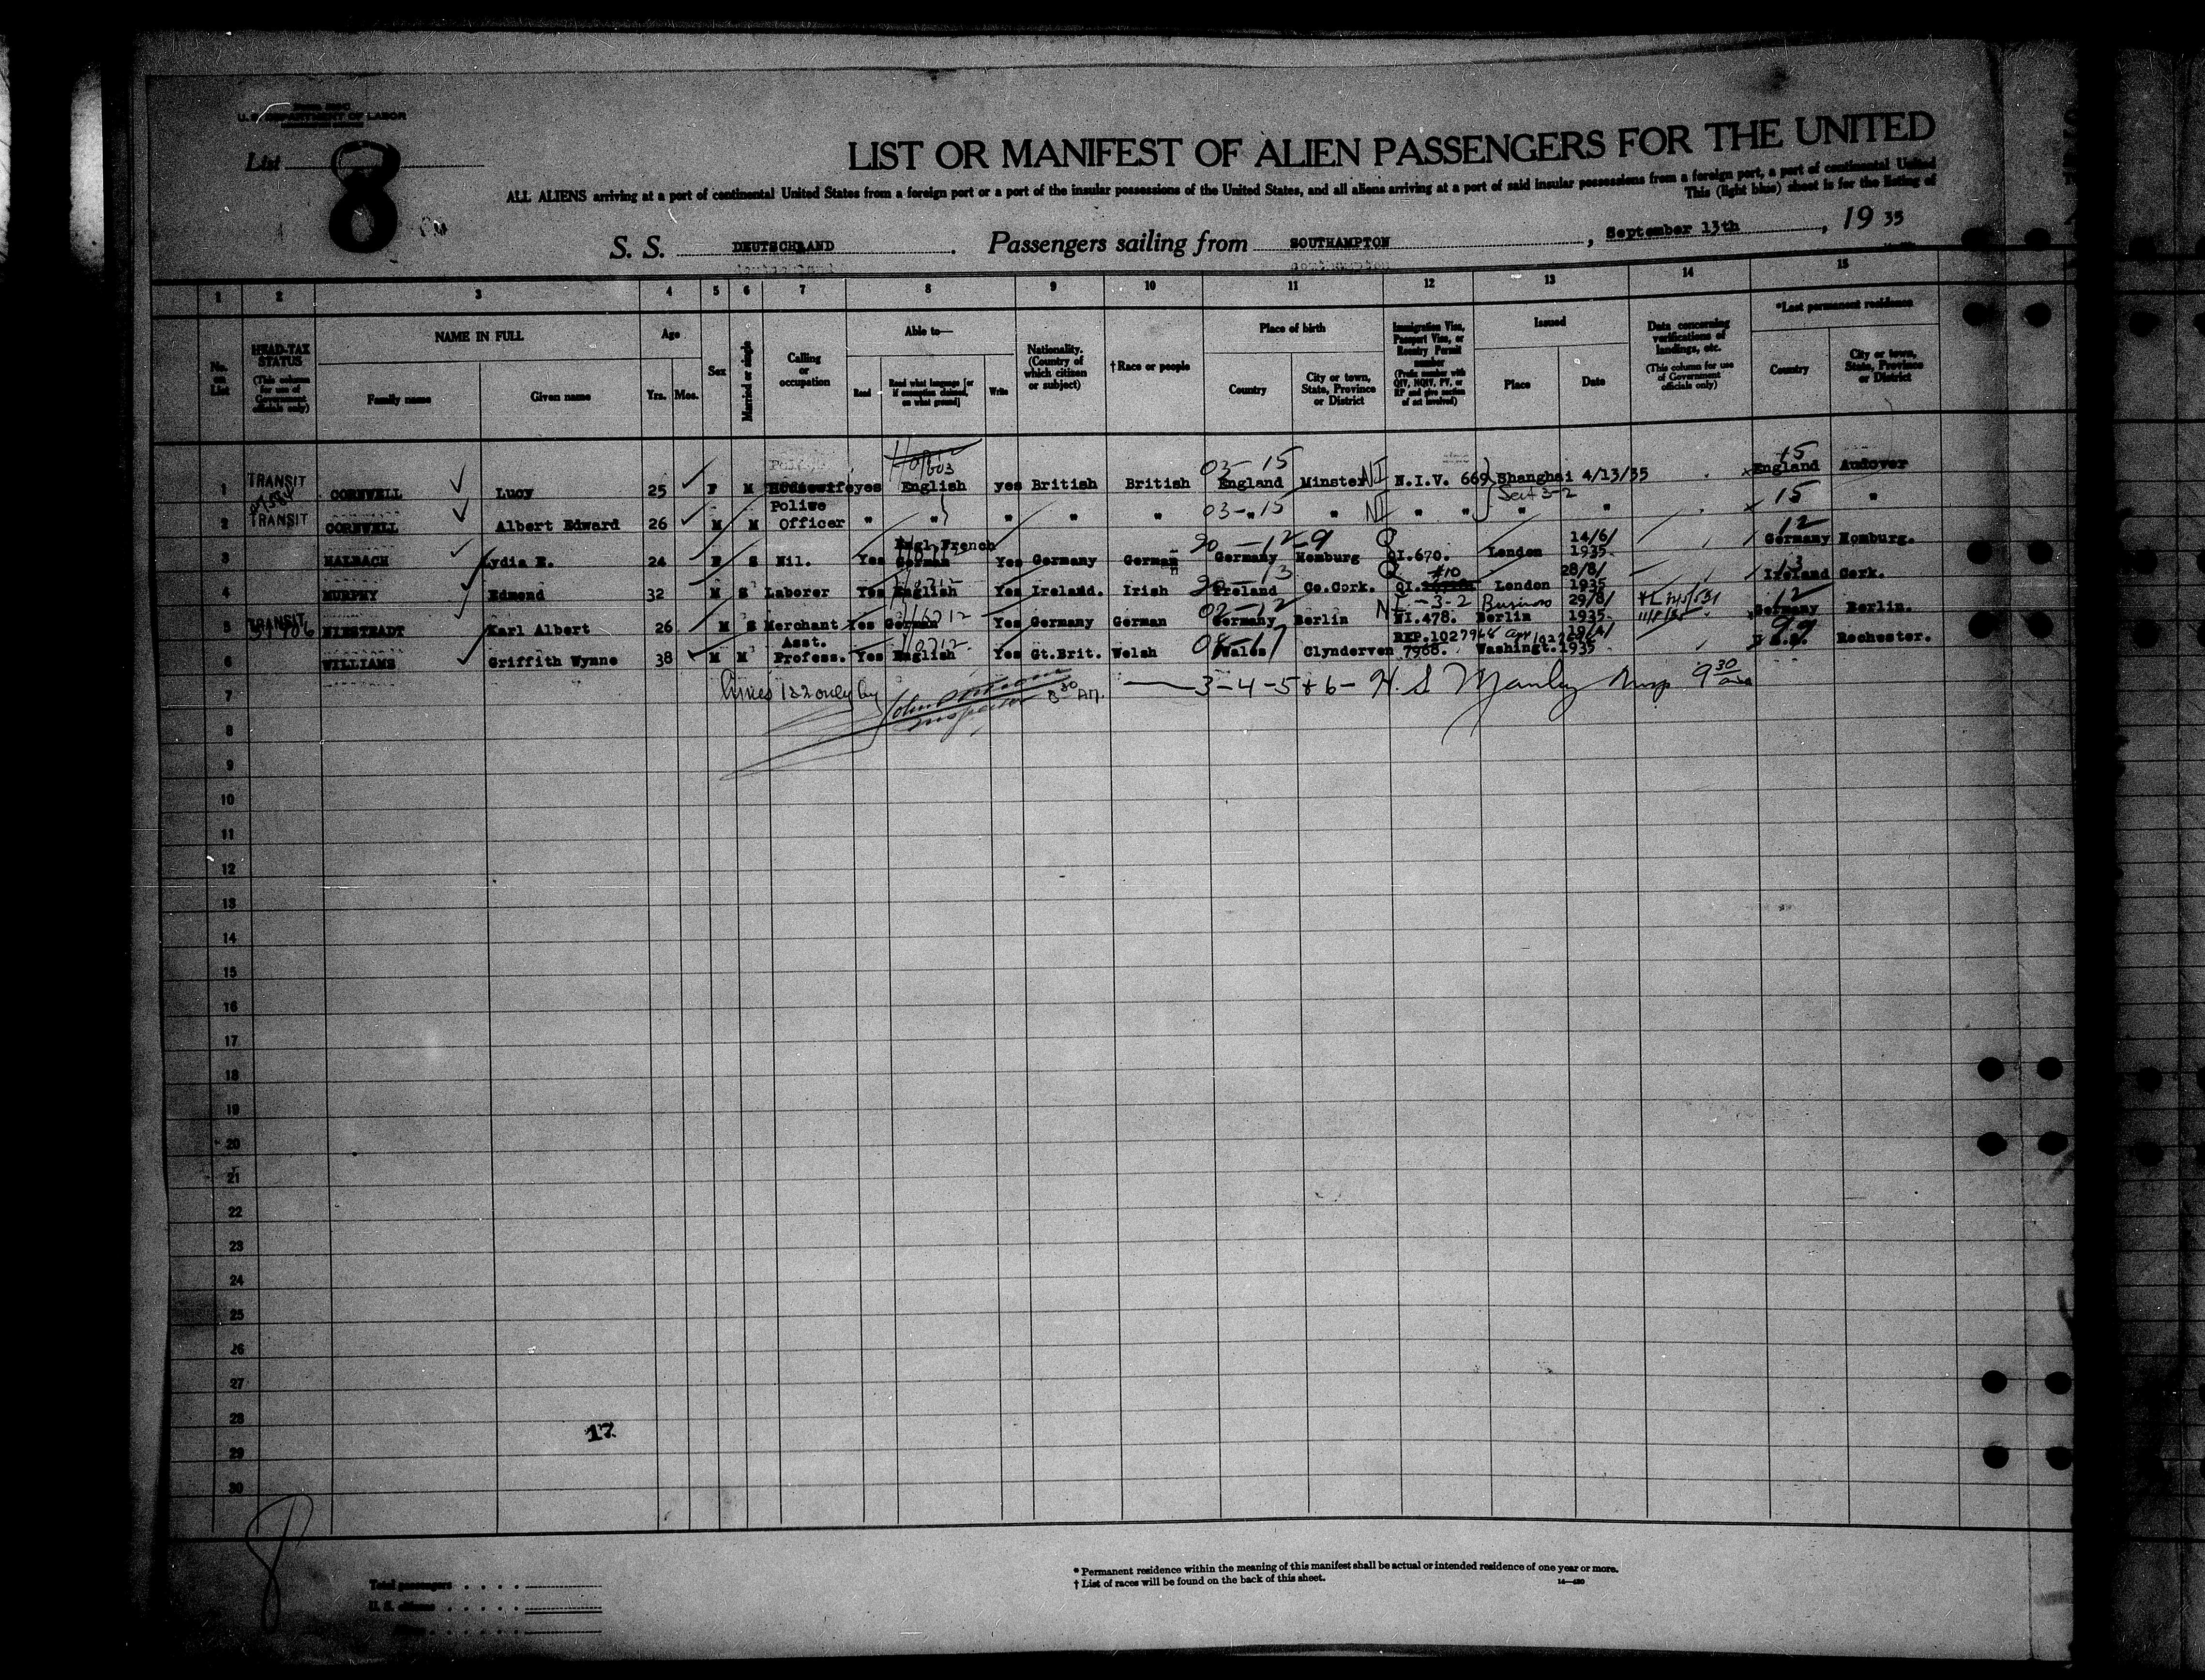 U. S. DEPARTMENT OF LABOR
List 8
LIST OR MANIFEST OF ALIEN PASSENGERS FOR THE UNITED
ALL ALIENS arriving at a port of continental United States from a foreign port or a part of the insular possessions of the United States, and all aliens arriving at a port of said insular possessions from a foreign port, a part of continental United
This (light blue) sheet is for the listing of
S. S. DEUTSCHLAND. Passengers sailing from SOUTHAMPTON, September 13th, 19 35
1 2 3 4 5 6 7 8 9 10 11 12 13 14 15
No. on List
HEAD-TAX STATUS (This column for use of Government officials only)
NAME IN FULL
Family name Given name
Age
Yrs. Mos.
Sex
Married or single
Calling or occupation
Able to—
Read Read what language [or if exemption claimed, on what ground] Write
Nationality. (Country of which citizen or subject)
†Race or people
Place of birth
Country City or town, State, Province or District
Immigration Visa, Passport Visa, or Reentry Permit number (Prefix number with QIV, NQIV, PV, or RP and give section of act involved)
Issued
Place Date
Data concerning verifications of landings, etc. (This column for use of Government officials only)
*Last permanent residence
Country City or town, State, Province or District
03-15 15
1 TRANSIT CORNWELL Lucy 25 F M Housewife yes English yes British British England Minster NI N.I.V. 669 Shanghai 4/13/35 England Andover
Sect 3-2
2 TRANSIT CORNWELL Albert Edward 26 M M Police Officer " " " " " 03-"15 " NI " " " " 15 "
Engl.French 20-12-9 Q 14/6/ 12
3 HALBACH Lydia E. 24 F S Nil. Yes German Yes Germany German Germany Homburg QI.670. London 1935. Germany Homburg.
13 Q #10 28/8/ 13
4 MURPHY Edmond 32 M S Laborer Yes English Yes Ireland. Irish Ireland Co.Cork. QI. London 1935 Ireland Cork.
02-12 NI-3-2 Business 29/8/ 12
5 TRANSIT NIESTRADT Karl Albert 26 M S Merchant Yes German Yes Germany German Germany Berlin NI.478. Berlin 1935. Germany Berlin.
Asst. 08-17 REP.1027968 99
6 WILLIAMS Griffith Wynne 38 M M Profess. Yes English Yes Gt.Brit. Welsh Wales Clynderven 7968. Washingt.1935 U.S.A. Rochester.
7 Lines 1&2 only by John Inspector 8 30 AM. 3-4-5 & 6- H. S Manley Insp 9 30
8
9
10
11
12
13
14
15
16
17
18
19
20
21
22
23
24
25
26
27
28
17
29
30
8
* Permanent residence within the meaning of this manifest shall be actual or intended residence of one year or more.
† List of races will be found on the back of this sheet. 14—430
Total passengers
U. S. citizens